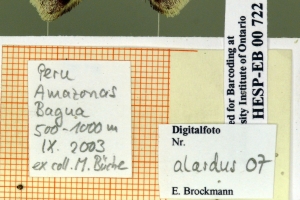 Peru
Amazonas
Bagua
500-1000 m
IX. 2003
ex coll. M. Büche
Digitalfoto
Nr.
alardus 07
E. Brockmann
ed for Barcoding at
sity Institute of Ontario
HESP-EB 00 722